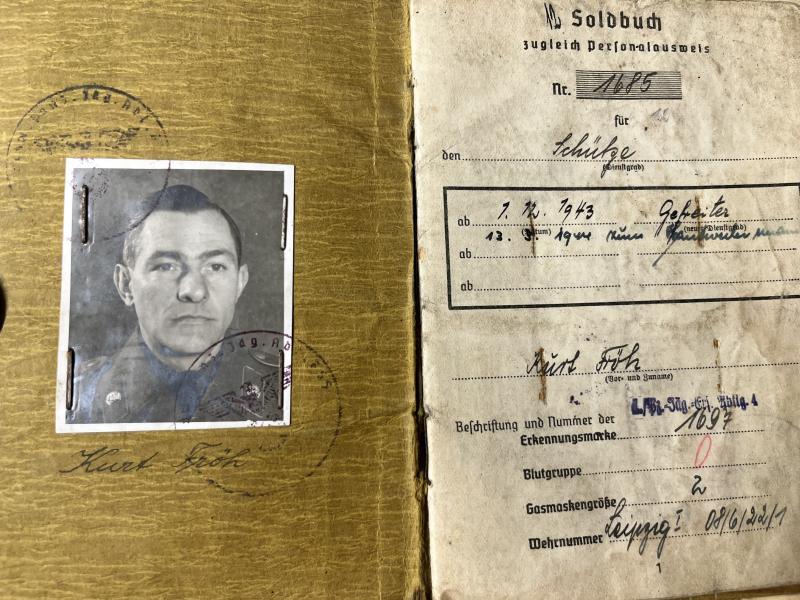 Jäg.
Kurt Fröh
Soldbuch
zugleich Personalausweis
Nr. 1685
für
den Schütze
(Dienstgrad)
ab 1. 12. 1943 Gefreiter
(Datum) (neuer Dienstgrad)
13. 1944 zum
ab
ab
Kurt Fröh
(Vor- und Zuname)
Beschriftung und Nummer der
Erkennungsmarke 1697
Blutgruppe 0
Gasmaskengröße 2
Wehrnummer Leipzig I 08/6/22/1
1